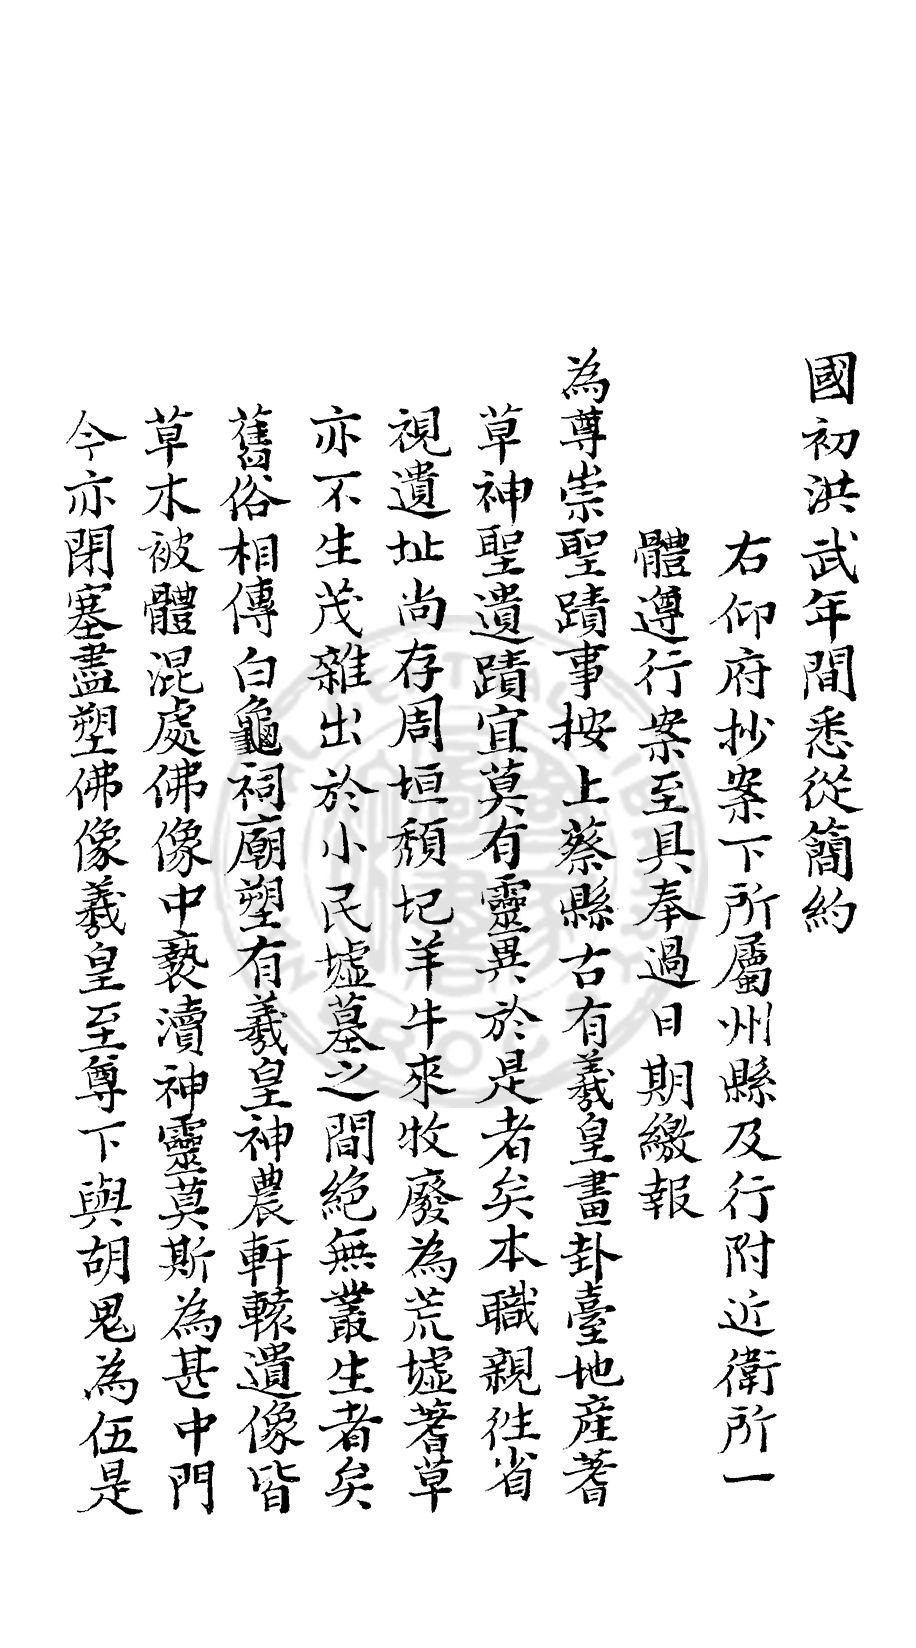 國初洪武年間悉從簡約
右仰府抄案下所屬州縣及行附近衛所一
體遵行案至具奉過日期繳報
為尊崇聖蹟事按上蔡縣古有羲皇畫卦臺地產蓍
草神聖遺蹟宜莫有靈異於是者矣本職親徃省
視遺址尚存周垣頹圮羊牛來牧廢為荒墟蓍草
亦不生茂雜出於小民墟墓之間絕無叢生者矣
舊俗相傳白龜祠廟塑有羲皇神農軒轅遺像皆
草木被體混處佛像中褻瀆神靈莫斯為甚中門
今亦閉塞盡塑佛像羲皇至尊下與胡鬼為伍是